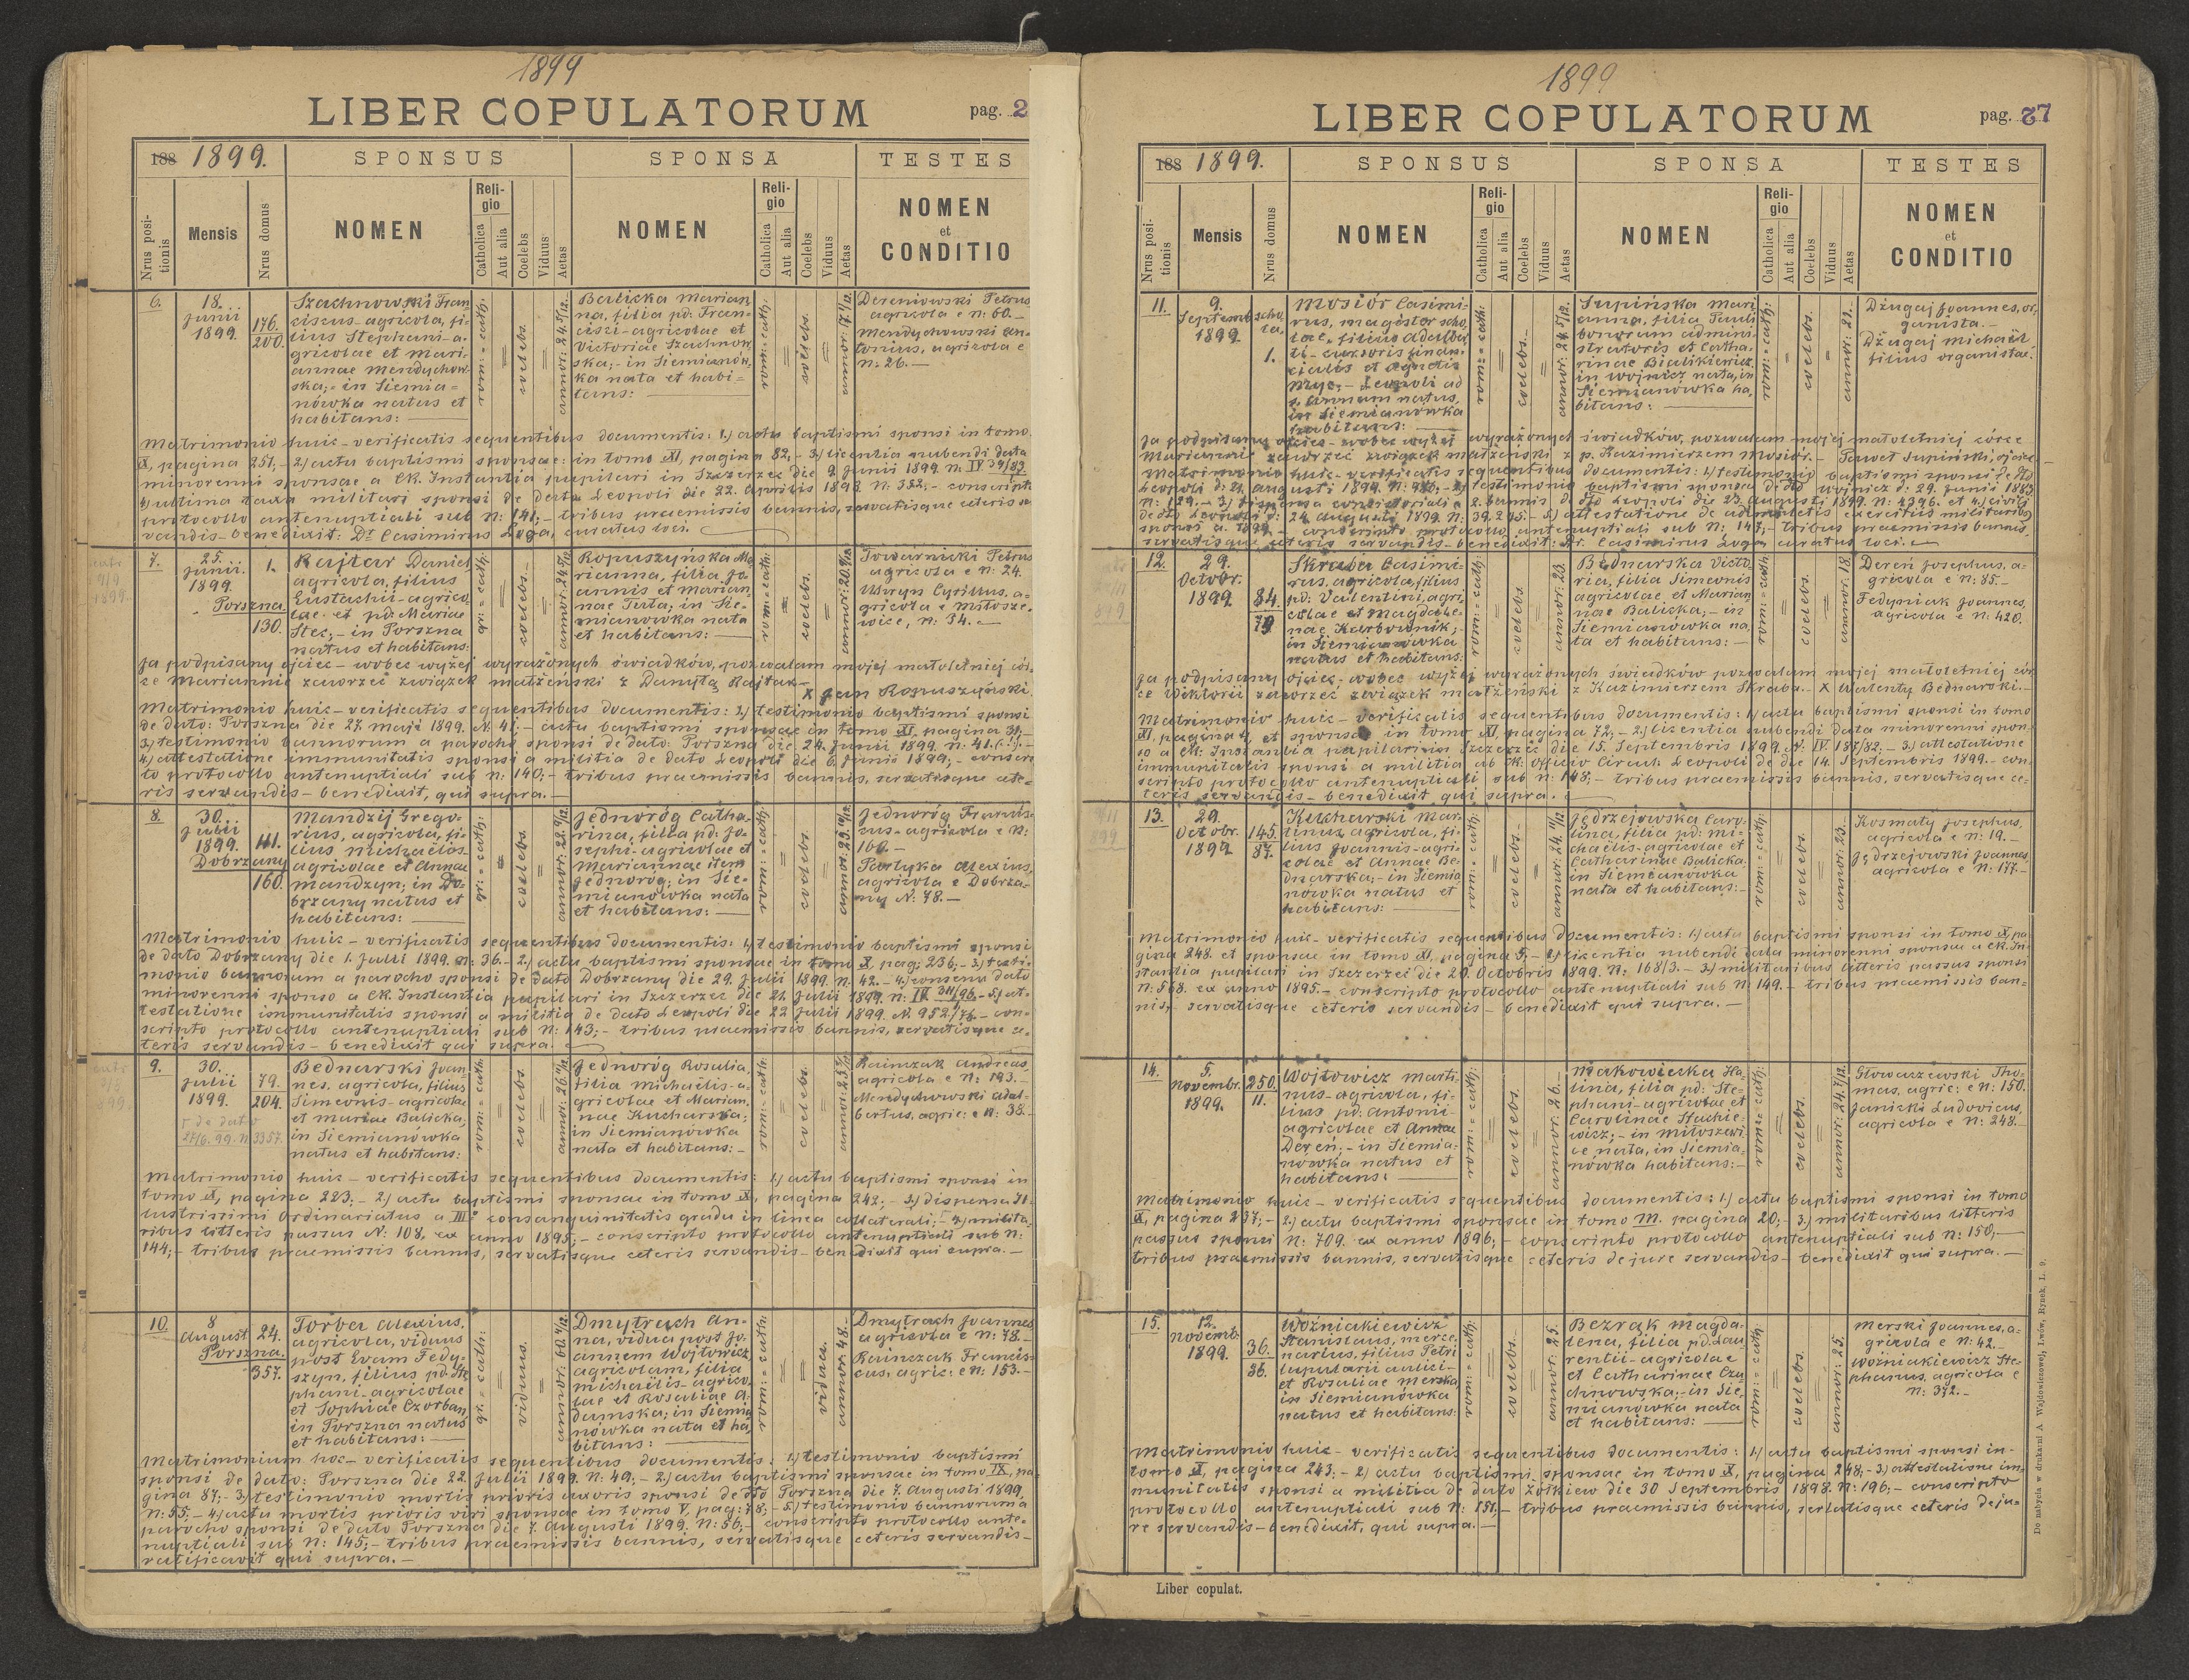 1899
LIBER COPULATORUM
pag. 2
188 1899.
SPONSUS
SPONSA
TESTES
Nrus positionis
Mensis
Nrus domus
NOMEN
Religio
Catholica
Aut alia
Coelebs
Viduus
Aetas
NOMEN
Religio
Catholica
Aut alia
Coelebs
Viduus
Aetas
NOMEN
et
CONDITIO
6.
18.
Junii
1899.
176.
200.
Szachnowski Fran
ciscus agricola, fi-
lius Stephani a-
gricolae et Mari-
annae Mendychow-
ska; in Siemia=
nówka natus et
habitans:
rom: cath:
coelebs.
annor: 24 5/12.
Balicka Marian
na, filia pd: Fran-
cisci agricolae et
Victoriae Szachnow
ska; in Siemianów-
ka nata et habi=
tans:
rom: cath:
coelebs.
Dereniowski Petrus
agricola e n: 60.
Mendychowski An-
tonius, agricola e
n: 26.
Matrimonio huic - verificatis sequentibus documentis: 1.) actu baptismi sponsi in tomo
IX, pagina 251, - 2.) actu baptismi sponsae: in tomo XI, pagina 82, - 3.) licentia nubendi data
minorenni sponsae a CK. Instantia pupilari in Szczerzec die 9. Junii 1899 n: IV
4.) ultima taxa militari sponsi de dato Leopoli die 22. Aprilis 1898. N: 352; - conscripto
protocollo antenuptiali sub N: 141; - tribus praemissis bannis, servatisque ceteris ser
vandis - benedixit: Dr. Casimirus Łoga, curatus loci.
7.
25.
Junii.
1899.
Porszna.
1.
130.
Rajtar Daniel
agricola, filius
Eustachii agrico-
lae et pd: Mariae
Stec; - in Porszna
natus et habitans:
gr: cath:
coelebs.
Kopuszyńska Ma
rianna, filia Jo
annis et Marian
nae Turta; in Sie-
mianówka nata
et habitans:
rom: cath:
coelebs.
Towarnicki Petrus
agricola e n: 24.
Cyrillus, a-
gricola e Miłosze-
wice, n: 34.
Ja podpisany ojciec - wobec wyżej wyrażonych świadków, pozwalam mojej małoletniej cór-
ce Mariannie zawrzeć związek małżeński z Danyłą Rajtar
X Jan Kopuszyński.
Matrimonio huic - verificatis sequentibus documentis: 1.) testimonio baptismi sponsi
de dato: Porszna die 27. Maji 1899. N. 41; - actu baptismi sponsae in tomo XI. pagina 31, -
3.) testimonio bannorum a parocho sponsi de dato: Porszna die 24. Junii 1899. n: 41.
4.) attestatione immunitatis sponsi a militia de dato Leopoli die 6. Junii 1899; - conscrip
to protocollo antenuptiali sub n: 140; - tribus praemissis bannis, servatisque cete-
ris servandis - benedixit, qui supra.
8.
30.
Julii
1899.
Dobrzany
111.
160.
Mandzij Grego-
rius, agricola, fi-
lius Michaelis
agricolae et Annae
Mandzyn; in Do-
brzany natus et
habitans:
gr: cath:
coelebs.
Jednoróg Catha-
rina, filia pd: Jo-
sephi agricolae et
Mariannae item
Jednoróg; in Sie-
mianówka nata
et habitans:
rom: cath:
coelebs.
Jednoróg Francis-
cus agricola e N:
166.
Partyka Alexius,
agricola e Dobrza-
ny N: 78.
Matrimonio huic - verificatis sequentibus documentis: 1.) testimonio baptismi sponsi
de dato Dobrzany die 1. Julii 1899. n: 36. - 2.) actu baptismi sponsae in tomo X, pag: 236; - 3.) testi-
monio bannorum a parocho sponsi de dato Dobrzany die 29. Julii 1899. n: 42. - 4.) consensu dato
minorenni sponso a CK. Instantia pupilari in Szczerzec die 21. Julii 1899. n: IV 311/96. - 5.) at-
testatione immunitatis sponsi a militia de dato Leopoli die 22 Julii 1899. N. 952/76. - con-
scripto protocollo antenuptiali sub N: 143; - tribus praemissis bannis, servatisque ce-
teris servandis - benedixit qui supra.
9.
30.
Julii
1899.
79.
204.
Bednarski Joan
nes, agricola, filius
Simeonis agricolae
et Mariae Balicka;
in Siemianówka
natus et habitans:
rom: cath:
coelebs.
Jednoróg Rosalia,
filia Michaelis a-
gricolae et Marian,
nae Kucharska;
in Siemianówka
nata et habitans:
rom: cath:
coelebs.
Rainczak Andreas
agricola e N: 193.
Mendychowski Adal-
bertus, agric: e N: 38.
Matrimonio huic - verificatis sequentibus documentis: 1.) actu baptismi sponsi in
tomo X, pagina 223; - 2.) actu baptismi sponsae in tomo X, pagina 242; - 3.) dispensa Il-
lustrissimi Ordinariatus a III° consanguinitatis gradu in linea collaterali; - 4.) milita-
ribus litteris passus N: 108, ex anno 1895; - conscripto protocollo antenuptiali sub n:
144; - tribus praemissis bannis, servatisque ceteris servandis - benedixit qui supra.
10.
8
August
Porszna.
24.
357.
Torba Alexius,
agricola, viduus
post Evam Fedy-
szyn, filius pd: Ste
phani agricolae
et Sophiae Czorban
in Porszna natus
et habitans:
gr. cath:
viduus.
Dmytrach An-
na, vidua post Jo-
annem Wojtowicz
agricolam, filia
Michaelis agrico-
lae et Rosaliae A-
damska; in Siemia
nówka nata et ha
bitans:
rom: cath:
vidua.
annor: 48.
Dmytrach Joannes
agricola e n: 78.
Rainczak Francis-
cus, agric: e n: 153.
Matrimonium hoc - verificatis sequentibus documentis: 1.) testimonio baptismi
sponsi de dato: Porszna die 22. Julii 1899. N: 49; - 2.) actu baptismi sponsae in tomo IX, pa-
gina 87; - 3.) testimonio mortis prioris uxoris sponsi de dto Porszna die 7. Augusti 1899,
N: 55; - 4.) actu mortis prioris viri sponsae in tomo V, pag: 78; - 5.) testimonio bannorum a
parocho sponsi de dato Porszna die 7. Augusti 1899. N: 56; - conscripto protocollo ante-
nuptiali sub N: 145; - tribus praemissis bannis, servatisque ceteris servandis -
ratificavit qui supra.
1899
LIBER COPULATORUM
pag. 27
188 1899.
SPONSUS
SPONSA
TESTES
Nrus positionis
Mensis
Nrus domus
NOMEN
Religio
Catholica
Aut alia
Coelebs
Viduus
Aetas
NOMEN
Religio
Catholica
Aut alia
Coelebs
Viduus
Aetas
NOMEN
et
CONDITIO
11.
9.
Septemb
1899.
scho
la.
1.
Mosiór Casimi-
rus, magister scho
lae, filius Adalber
ti
Leopoli ad
s. Annam natus,
in Siemianówka
habitans:
rom: cath:
coelebs.
Supińska Mari
anna, filia Pauli
bonorum admini-
stratoris et Catha-
rinae Bialikiewicz,
in Wojnicz nata, in
Siemianówka ha,
bitans:
rom: cath:
coelebs.
annor: 22.
Dżugaj Joannes, or,
ganista.
Dżugaj Michaël,
filius organistae.
Ja podpisany ojciec - wobec wyżej wyrażonych świadków, pozwalam mojej małoletniej córce
Mariannie zawrzeć związek małżeński z p. Kazimierzem Mosiór. - Paweł Supiński, ojciec
Matrimonio huic - verificatis sequentibus documentis: 1.) testimonio baptismi sponsi de dto
Leopoli d: 21. Augusti 1899. - 2.) testimonio baptismi sponsae de dto Wojnicz d: 29. Junii 1883
N: 129. - 3.) dispensa consistoriali a 2. bannis de dto Leopoli die 23. Augusti 1899. N: 4396. et
de dto Leopoli d: 24. Augusti 1899. N: 39.275.
conscripto protocollo antenuptiali sub N: 147; - tribus praemissis bannis,
servatisque ceteris servandis - benedixit: Dr. Casimirus Łoga curatus loci.
12.
29.
Octobr.
1899.
84.
79.
Skraba Casimi-
rus, agricola, filius
pd: Valentini, agri,
colae et Magdale-
nae Karbownik;
in Siemianówka
natus et habitans:
rom: cath:
coelebs
Bednarska Victo
ria, filia Simeonis
agricolae et Marian
nae Balicka; - in
Siemianówka na,
ta et habitans:
rom: cath:
coelebs.
annor: 18.
Dereń Josephus, a-
gricola e n: 85.
Fedyniak Joannes,
agricola e N: 420.
Ja podpisany ojciec - wobec wyżej wyrażonych świadków pozwalam mojej małoletniej cór
ce Wiktorii zawrzeć związek małżeński z Kazimierzem Skraba. - X Walenty Bednarski.
Matrimonio huic - verificatis sequentibus documentis: 1.) actu baptismi sponsi in tomo
XI, pagina et sponsae in tomo XI, pagina 72; - 2.) licentia nubendi data minorenni spon-
so a CK. Instantia pupilari in Szczerzec die 15. Septembris 1899. N. IV 187/82; - 3.) attestatione
immunitatis sponsi a militia ab CK. Officio Circul: Leopoli de die 14. Septembris 1899. - con-
scripto protocollo antenuptiali sub n: 148; - tribus praemissis bannis, servatisque ce-
teris servandis - benedixit qui supra.
13.
29.
Octobr.
1899
145.
87.
Kucharski Mar-
tinus, agricola, fi-
lius Joannis agri-
colae et Annae Be-
dnarska; - in Siemia
nówka natus et
habitans:
rom: cath:
coelebs.
Jędrzejowska Caro-
lina, filia pd: Mi-
chaëlis agricolae et
Catharinae Balicka
in Siemianówka
nata et habitans:
rom: cath:
coelebs.
annor: 23.
Kosmaty Josephus,
agricola e N: 19.
Jędrzejowski Joannes,
agricola e N: 177.
Matrimonio huic - verificatis sequentibus documentis: 1.) actu baptismi sponsi in tomo X, pa
gina 248. et sponsae in tomo XI, pagina 5; - 2.) licentia nubendi data minorenni sponsae a CK. In-
stantia pupilari in Szczerzec die 20. Octobris 1899. N: 168/3. - 3.) militaribus litteris passus sponsi
N: 568. ex anno 1895. - conscripto protocollo antenuptiali sub N: 149. - tribus praemissis ban-
nis, servatisque ceteris servandis - benedixit qui supra.
14.
5.
Novembr.
1899.
250.
11.
Wojtowicz Marti
nus agricola, fi-
lius pd: Antonii
agricolae et Annae
Dereń; - in Siemia-
nówka natus et
habitans:
rom: cath:
coelebs.
annor: 26.
Makowiecka Ha-
lina, filia pd: Ste-
phani agricolae et
Carolinae Stachie-
wicz; - in Miłoszewi-
ce nata, in Siemia-
nówka habitans:
rom: cath:
coelebs.
annor: 24 7/12.
Głowaszewski Tho-
mas, agric: e n: 150.
Janicki Ludovicus,
agricola e n: 248.
Matrimonio huic - verificatis sequentibus documentis: 1.) actu baptismi sponsi in tomo
X, pagina 237; - 2.) actu baptismi sponsae in tomo M. pagina 20; - 3.) militaribus litteris
passus sponsi N: 709. ex anno 1896; - conscripto protocollo antenuptiali sub n: 150;
tribus praemissis bannis, servatisque ceteris de jure servandis - benedixit qui supra.
15.
12.
Novemb.
1899.
36.
36.
Woźniakiewicz
Stanislaus, merce,
narius, filius Petri
lupularii aulici
et Rosaliae Merska
in Siemianówka
natus et habitans:
rom: cath:
coelebs.
annor: 25.
Bezrąk Magda-
lena, filia pd. Lau
rentii agricolae
et Catharinae Czu-
chnowska; - in Sie,
mianówka nata
et habitans:
rom: cath:
coelebs.
annor: 25.
Merski Joannes, a-
gricola e N: 42.
Woźniakiewicz Ste-
phanus, agricola e
N: 372.
Matrimonio huic - verificatis sequentibus documentis: 1.) actu baptismi sponsi in
tomo X, pagina 243; - 2.) actu baptismi sponsae in tomo X, pagina 248; - 3.) attestatione im-
munitatis sponsi a militia de dato Żółkiew die 30 Septembris 1898. N: 196; - conscripto
protocollo antenuptiali sub N: 151; - tribus praemissis bannis, servatisque ceteris de ju-
re servandis - benedixit, qui supra.
Liber copulat.
Do nabycia w drukarni A. Wajdowiczowej, Lwów, Rynek, L. 9.